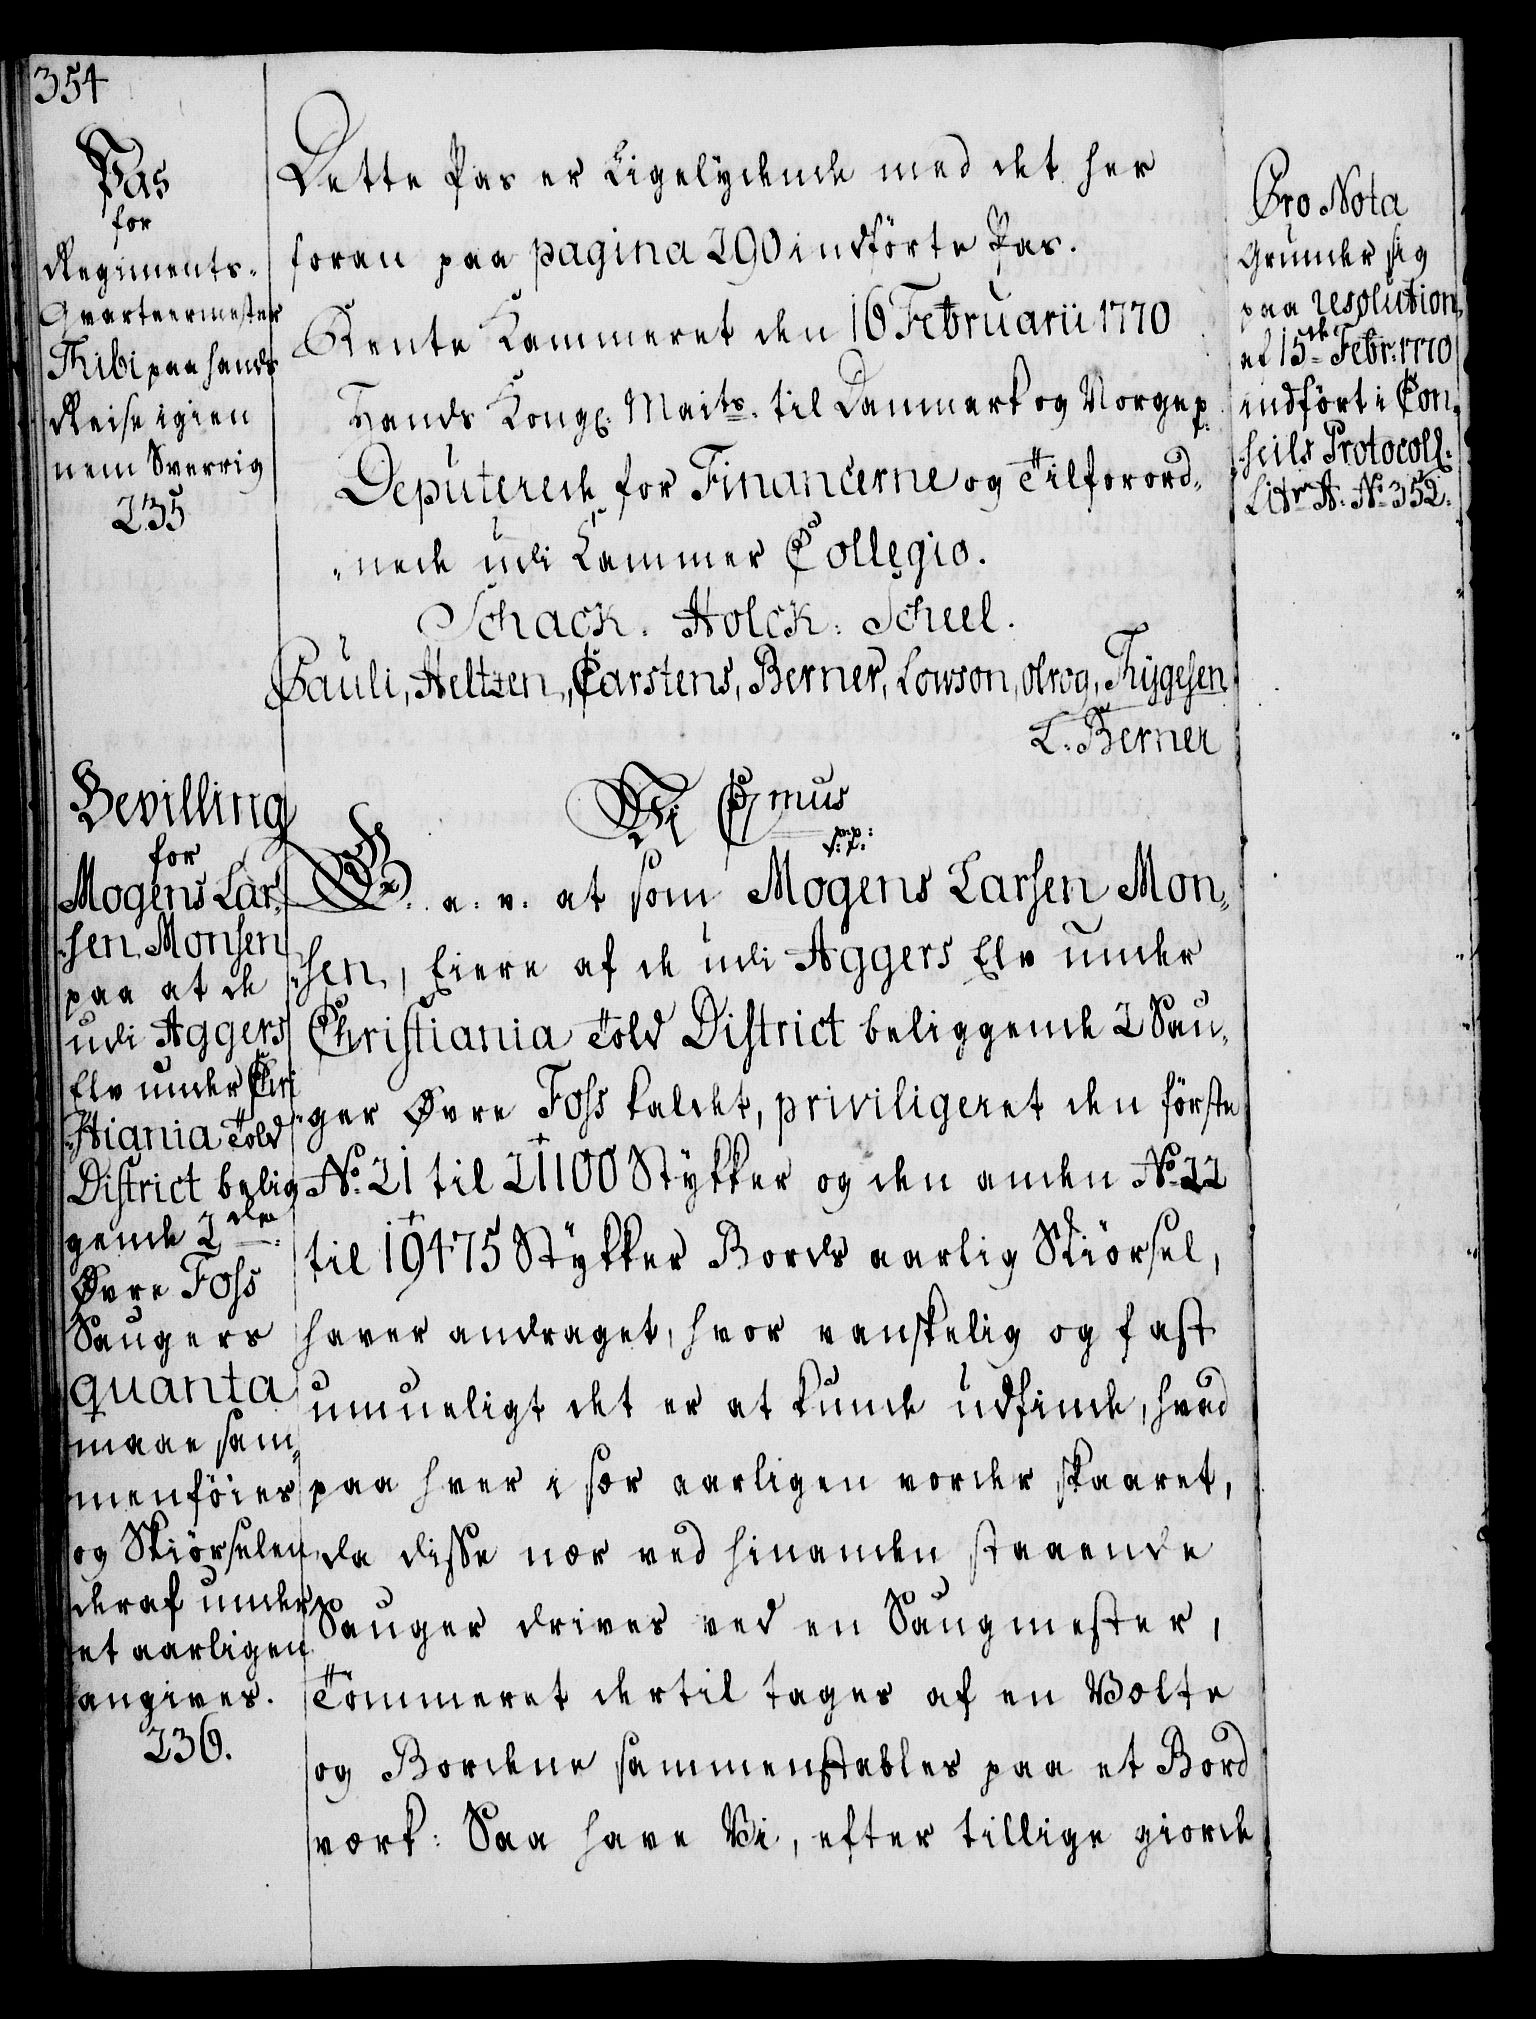 354
Pas
for
Regiments-
Qvarteermester
Thibi paa hands
Reise igien
nem Sverrig
235
Dette Pas er Ligelydende med det her
foran paa pagina 290 indförte Pas.
Rente Kammeret den 16 Februarii 1770
Hands Kongl. Maits. til Danmark og Norge p.
Deputerede for Financerne og Tilforord„
„nede udi Kammer Collegio.
Schack. Holck. Scheel.
Pauli, Heltzen, Carstens, Berner, Lowson, Olrog, Thÿgesen
L. Berner
Pro Nota
Grunder sig
paa resolution
af 15de Febr: 1770
indfört i Con„
seils Protocoll:
Litr A: No 352.
Bevilling
for
Mogens Lar„
„sen Monsen
paa at de
udi Aggers
Elv under Chri
„stiania Told
District belig
gende 2de
Øvre Foss
Saugers
quanta
maae sam„
menföies
og Skiörselen
deraf under
et aarligen
angives.
236.
Vi C7mus
p.p:
G. a. v. at som Mogens Larsen Mon„
„sen, Eiere af de udi Aggers Elv under
Christiania Told District beliggende 2 Sau„
„ger Øvre Foss kaldet, priviligeret den förste
No. 21 til 21100 Stykker og den anden No 22
til 19475 Stykker Bords aarlig Skiörsel,
haver andraget, hvor vanskelig og fast
umueligt det er at kunde udfinde, hvad
paa hver i sær aarligen vorder skaaret,
da disse nær ved hinanden staaende
Sauger drives ved en Saugmester,
Tømmeret dertil tages af en Volte
og Bordene sammenstables paa et Bord
værk: Saa have Vi, efter tillige giorde